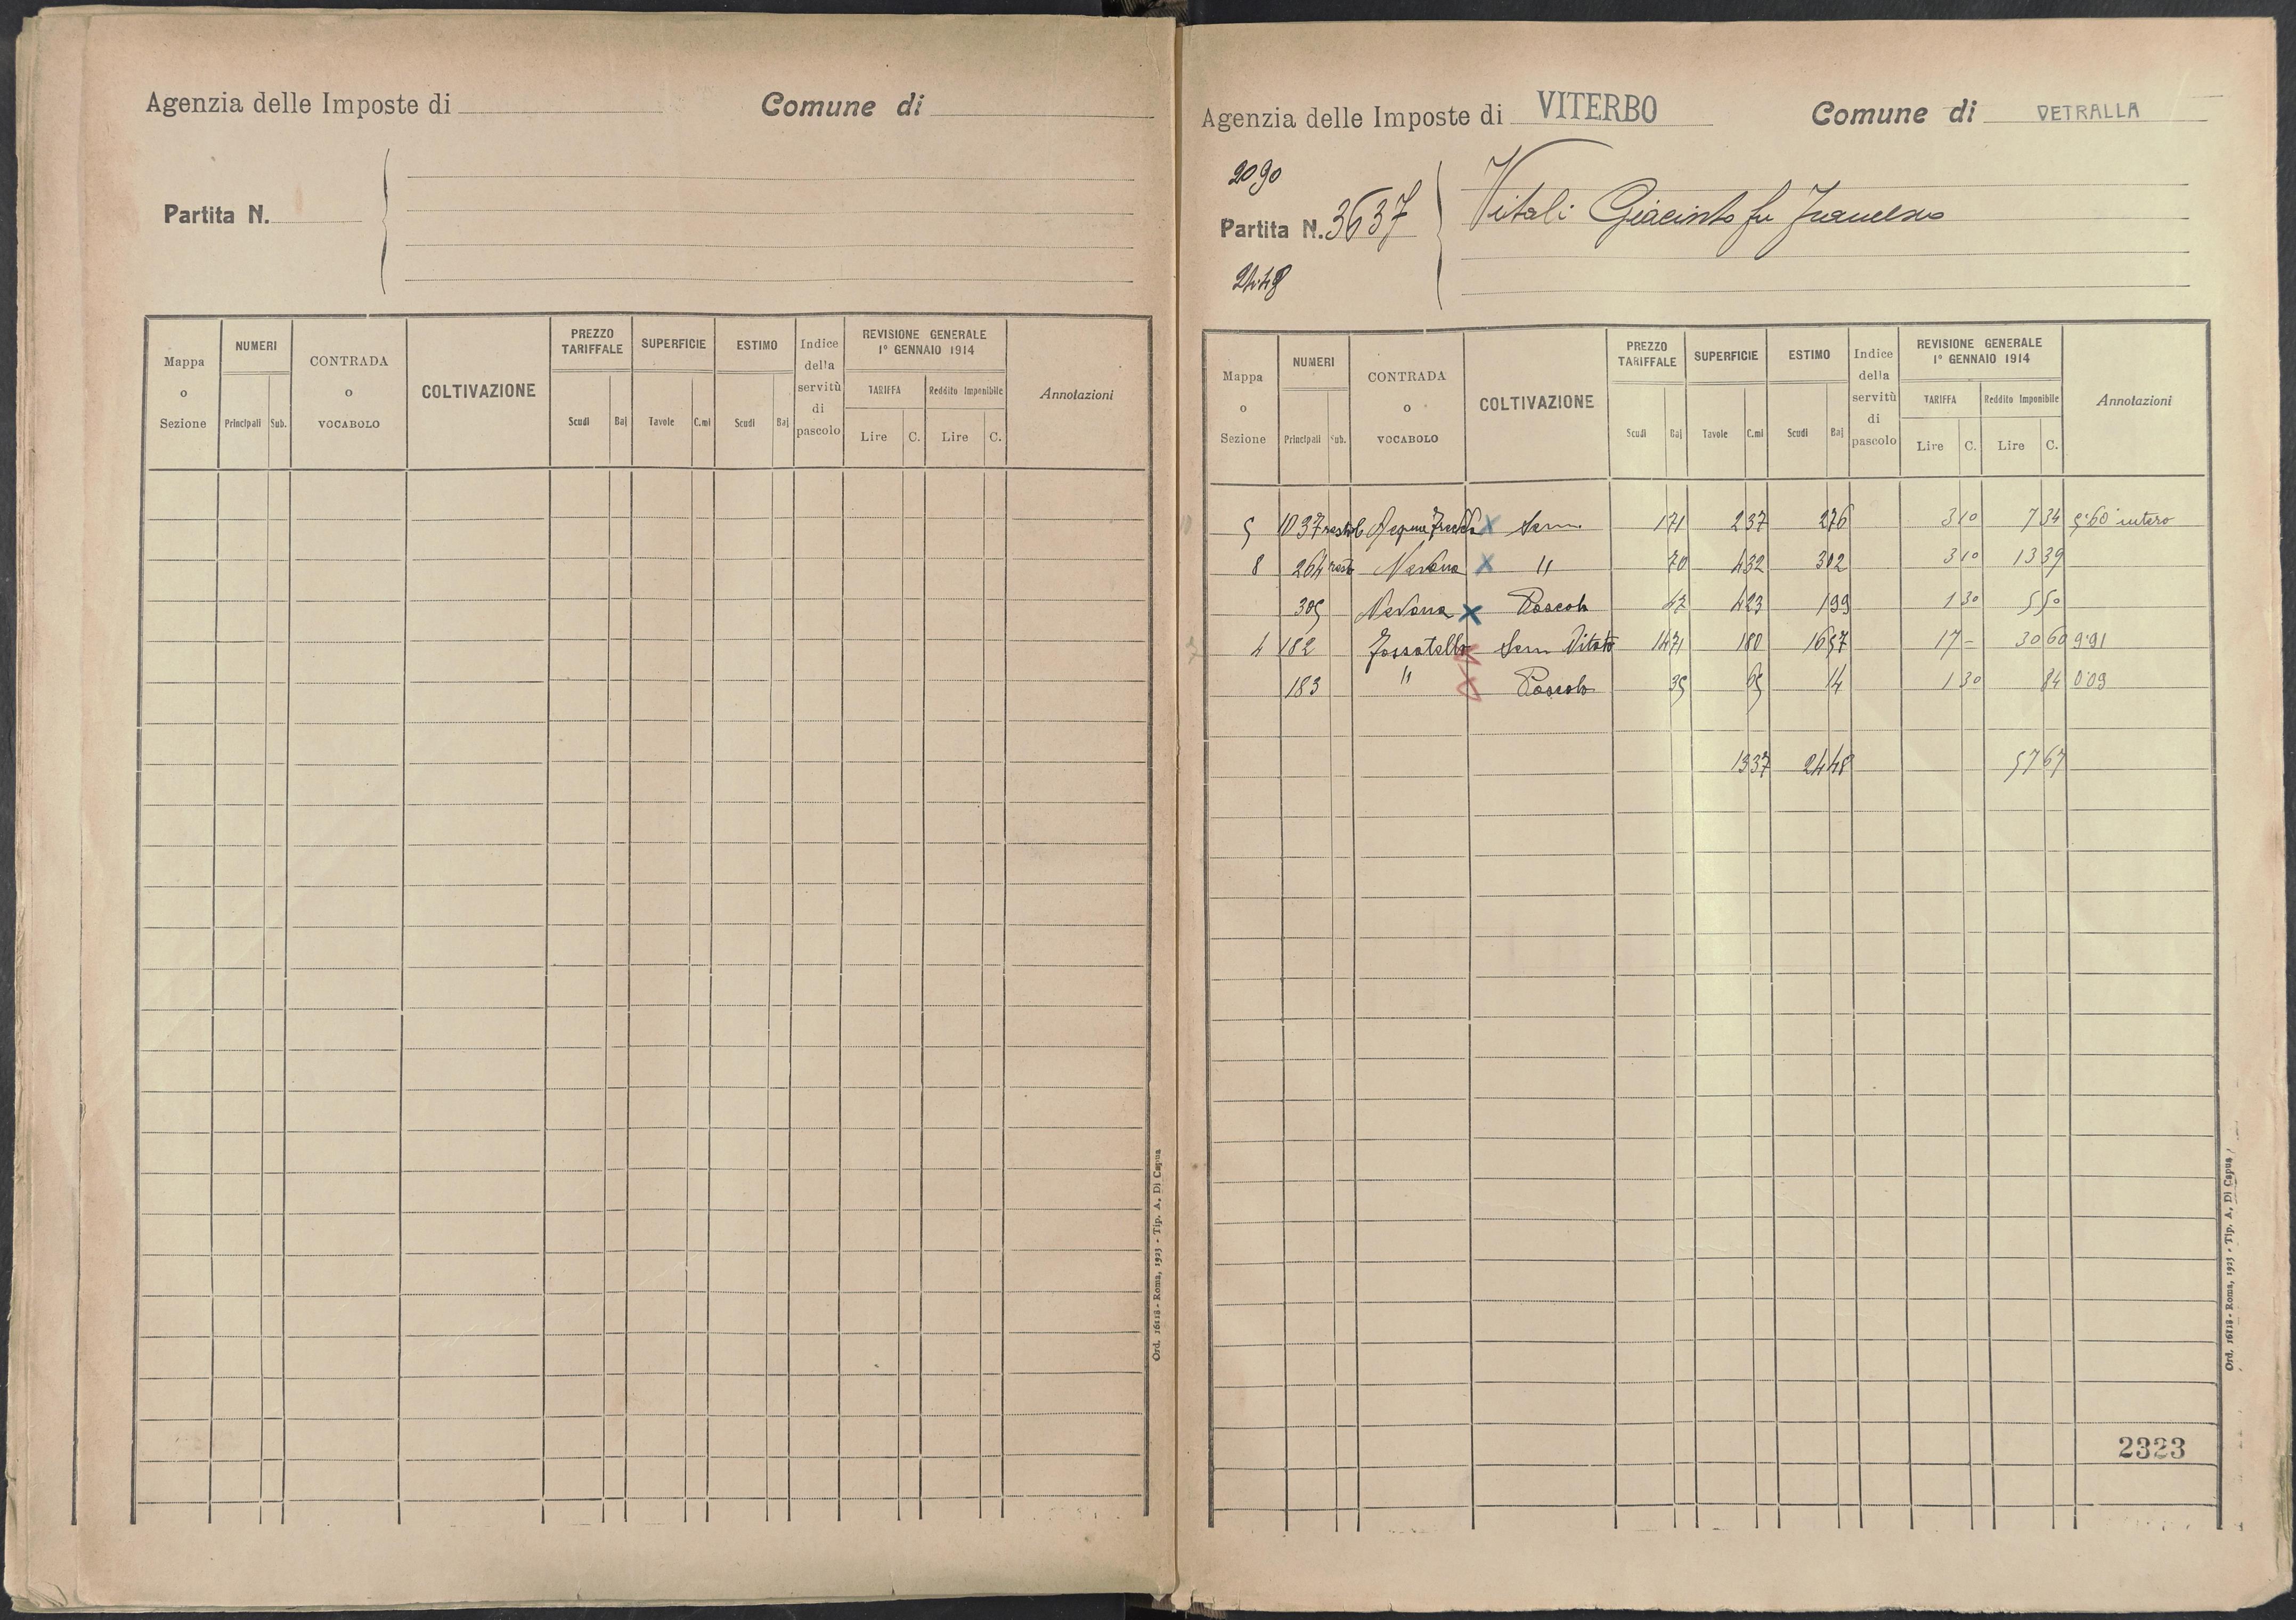 Agenzia delle Imposte di
Comune di
Partita N.
Mappa o Sezione
NUMERI
Principali
Sub.
CONTRADA o VOCABOLO
COLTIVAZIONE
PREZZO TARIFFALE
Scudi
Baj
SUPERFICIE
Tavole
C.mi
ESTIMO
Scudi
Baj
Indice della servitù di pascolo
REVISIONE GENERALE
1° GENNAIO 1914
TARIFFA
Reddito Imponibile
Lire
C.
Lire
C.
Annotazioni
Ord. 16118 - Roma, 1923 - Tip. A. Di Capua
Agenzia delle Imposte di VITERBO
Comune di VETRALLA
2090
Partita N. 3637
Vitali Giacinto fu Francesco
2448
Mappa o Sezione
NUMERI
Principali
Sub.
CONTRADA o VOCABOLO
COLTIVAZIONE
PREZZO TARIFFALE
Scudi
Baj
SUPERFICIE
Tavole
C.mi
ESTIMO
Scudi
Baj
Indice della servitù di pascolo
REVISIONE GENERALE
1° GENNAIO 1914
TARIFFA
Reddito Imponibile
Lire
C.
Lire
C.
Annotazioni
5 1037 X Sem. 171 237 276 3 10 7 34 intero
8 264 rest X " 70 432 302 3 10 13 39
305 X Pascolo 47 423 199 1 30 5 50
4 182 Fossatello Sem Vitato 1471 180 1657 17 - 30 60 9.91
183 " Pascolo 35 65 14 1 30 84 0.09
1337 2448 57 67
2323
Ord. 16118 - Roma, 1923 - Tip. A. Di Capua